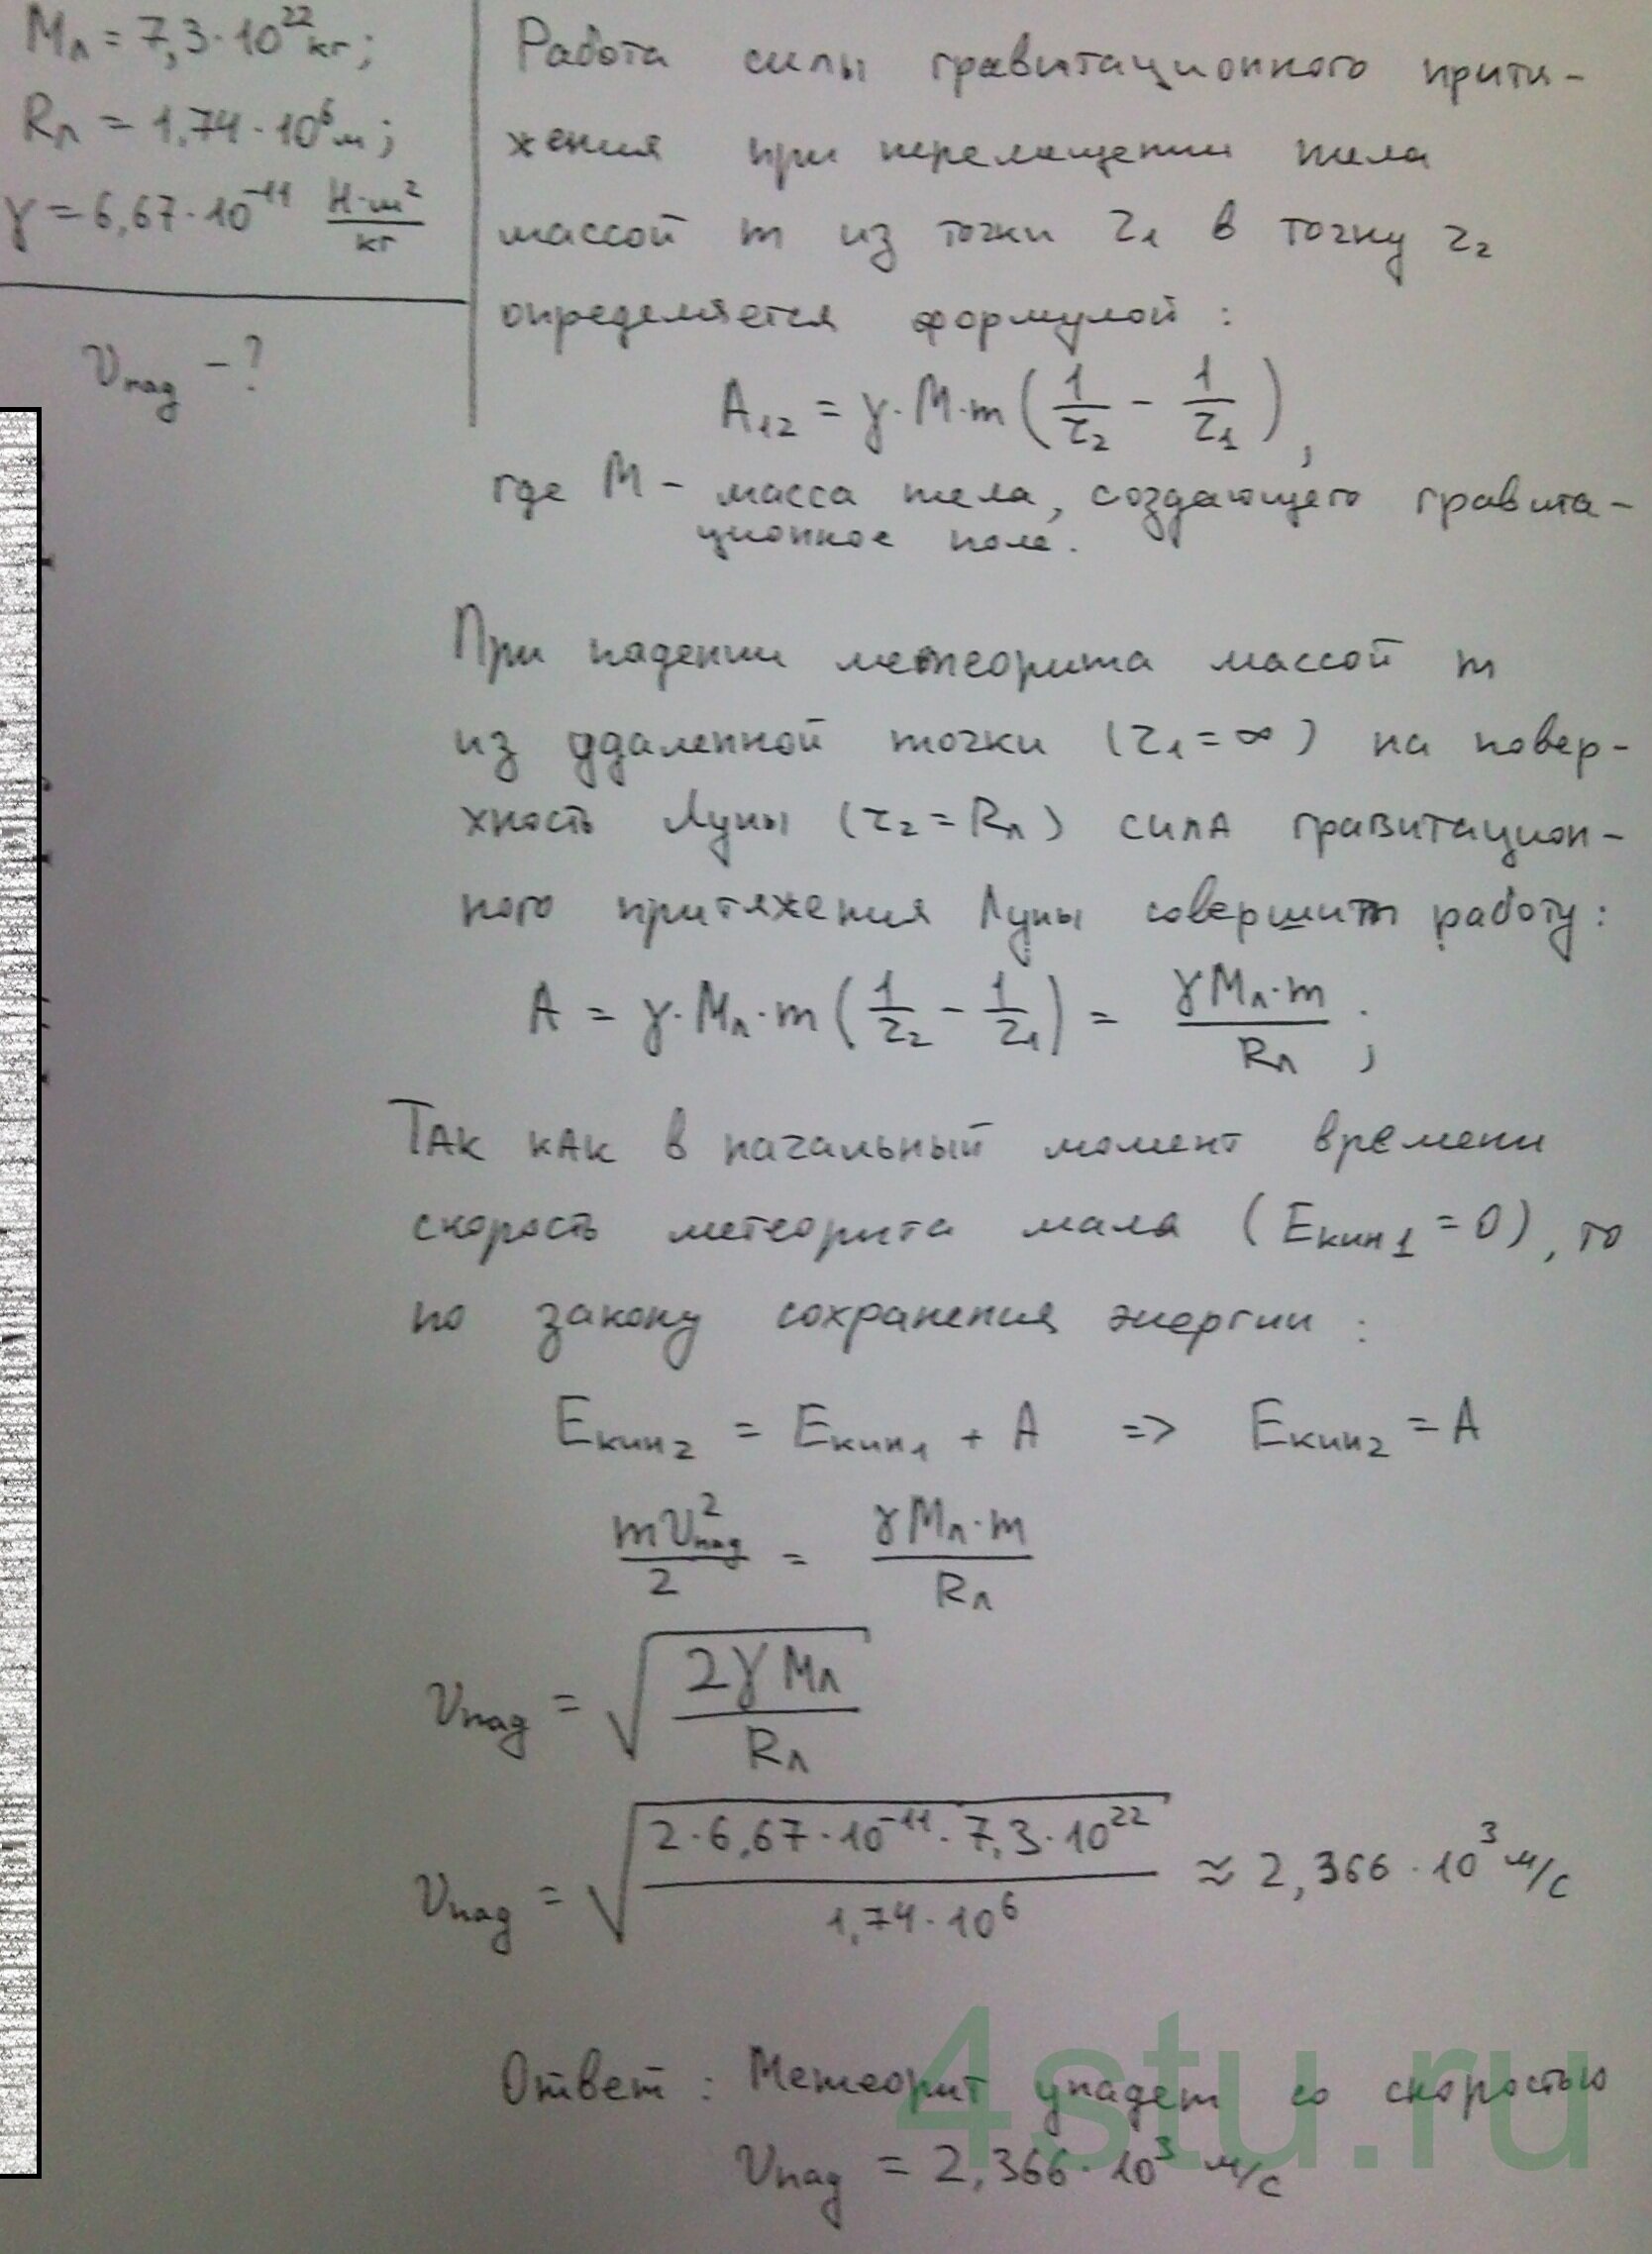 Mл = 7,3·10²² кг;
Rл = 1,74·10⁶ м;
γ = 6,67·10⁻¹¹ Н·м²/кг
υпад - ?
Работа силы гравитационного притя-
жения при перемещении тела
массой m из точки r₁ в точку r₂
определяется формулой:
A₁₂ = γ·M·m(1/r₂ - 1/r₁),
где M - масса тела, создающего гравита-
ционное поле.
При падении метеорита массой m
из удаленной точки (r₁ = ∞) на повер-
хность Луны (r₂ = Rл) сила гравитацион-
ного притяжения Луны совершит работу:
A = γ·Mл·m(1/r₂ - 1/r₁) = γMл·m/Rл;
Так как в начальный момент времени
скорость метеорита мала (Eкин1 = 0), то
по закону сохранения энергии:
Eкин2 = Eкин1 + A => Eкин2 = A
mυ²пад/2 = γMл·m/Rл
υпад = √(2γMл/Rл)
υпад = √(2·6,67·10⁻¹¹·7,3·10²²/1,74·10⁶) ≈ 2,366·10³ м/с
Ответ: Метеорит упадет со скоростью
υпад = 2,366·10³ м/с
4stu.ru